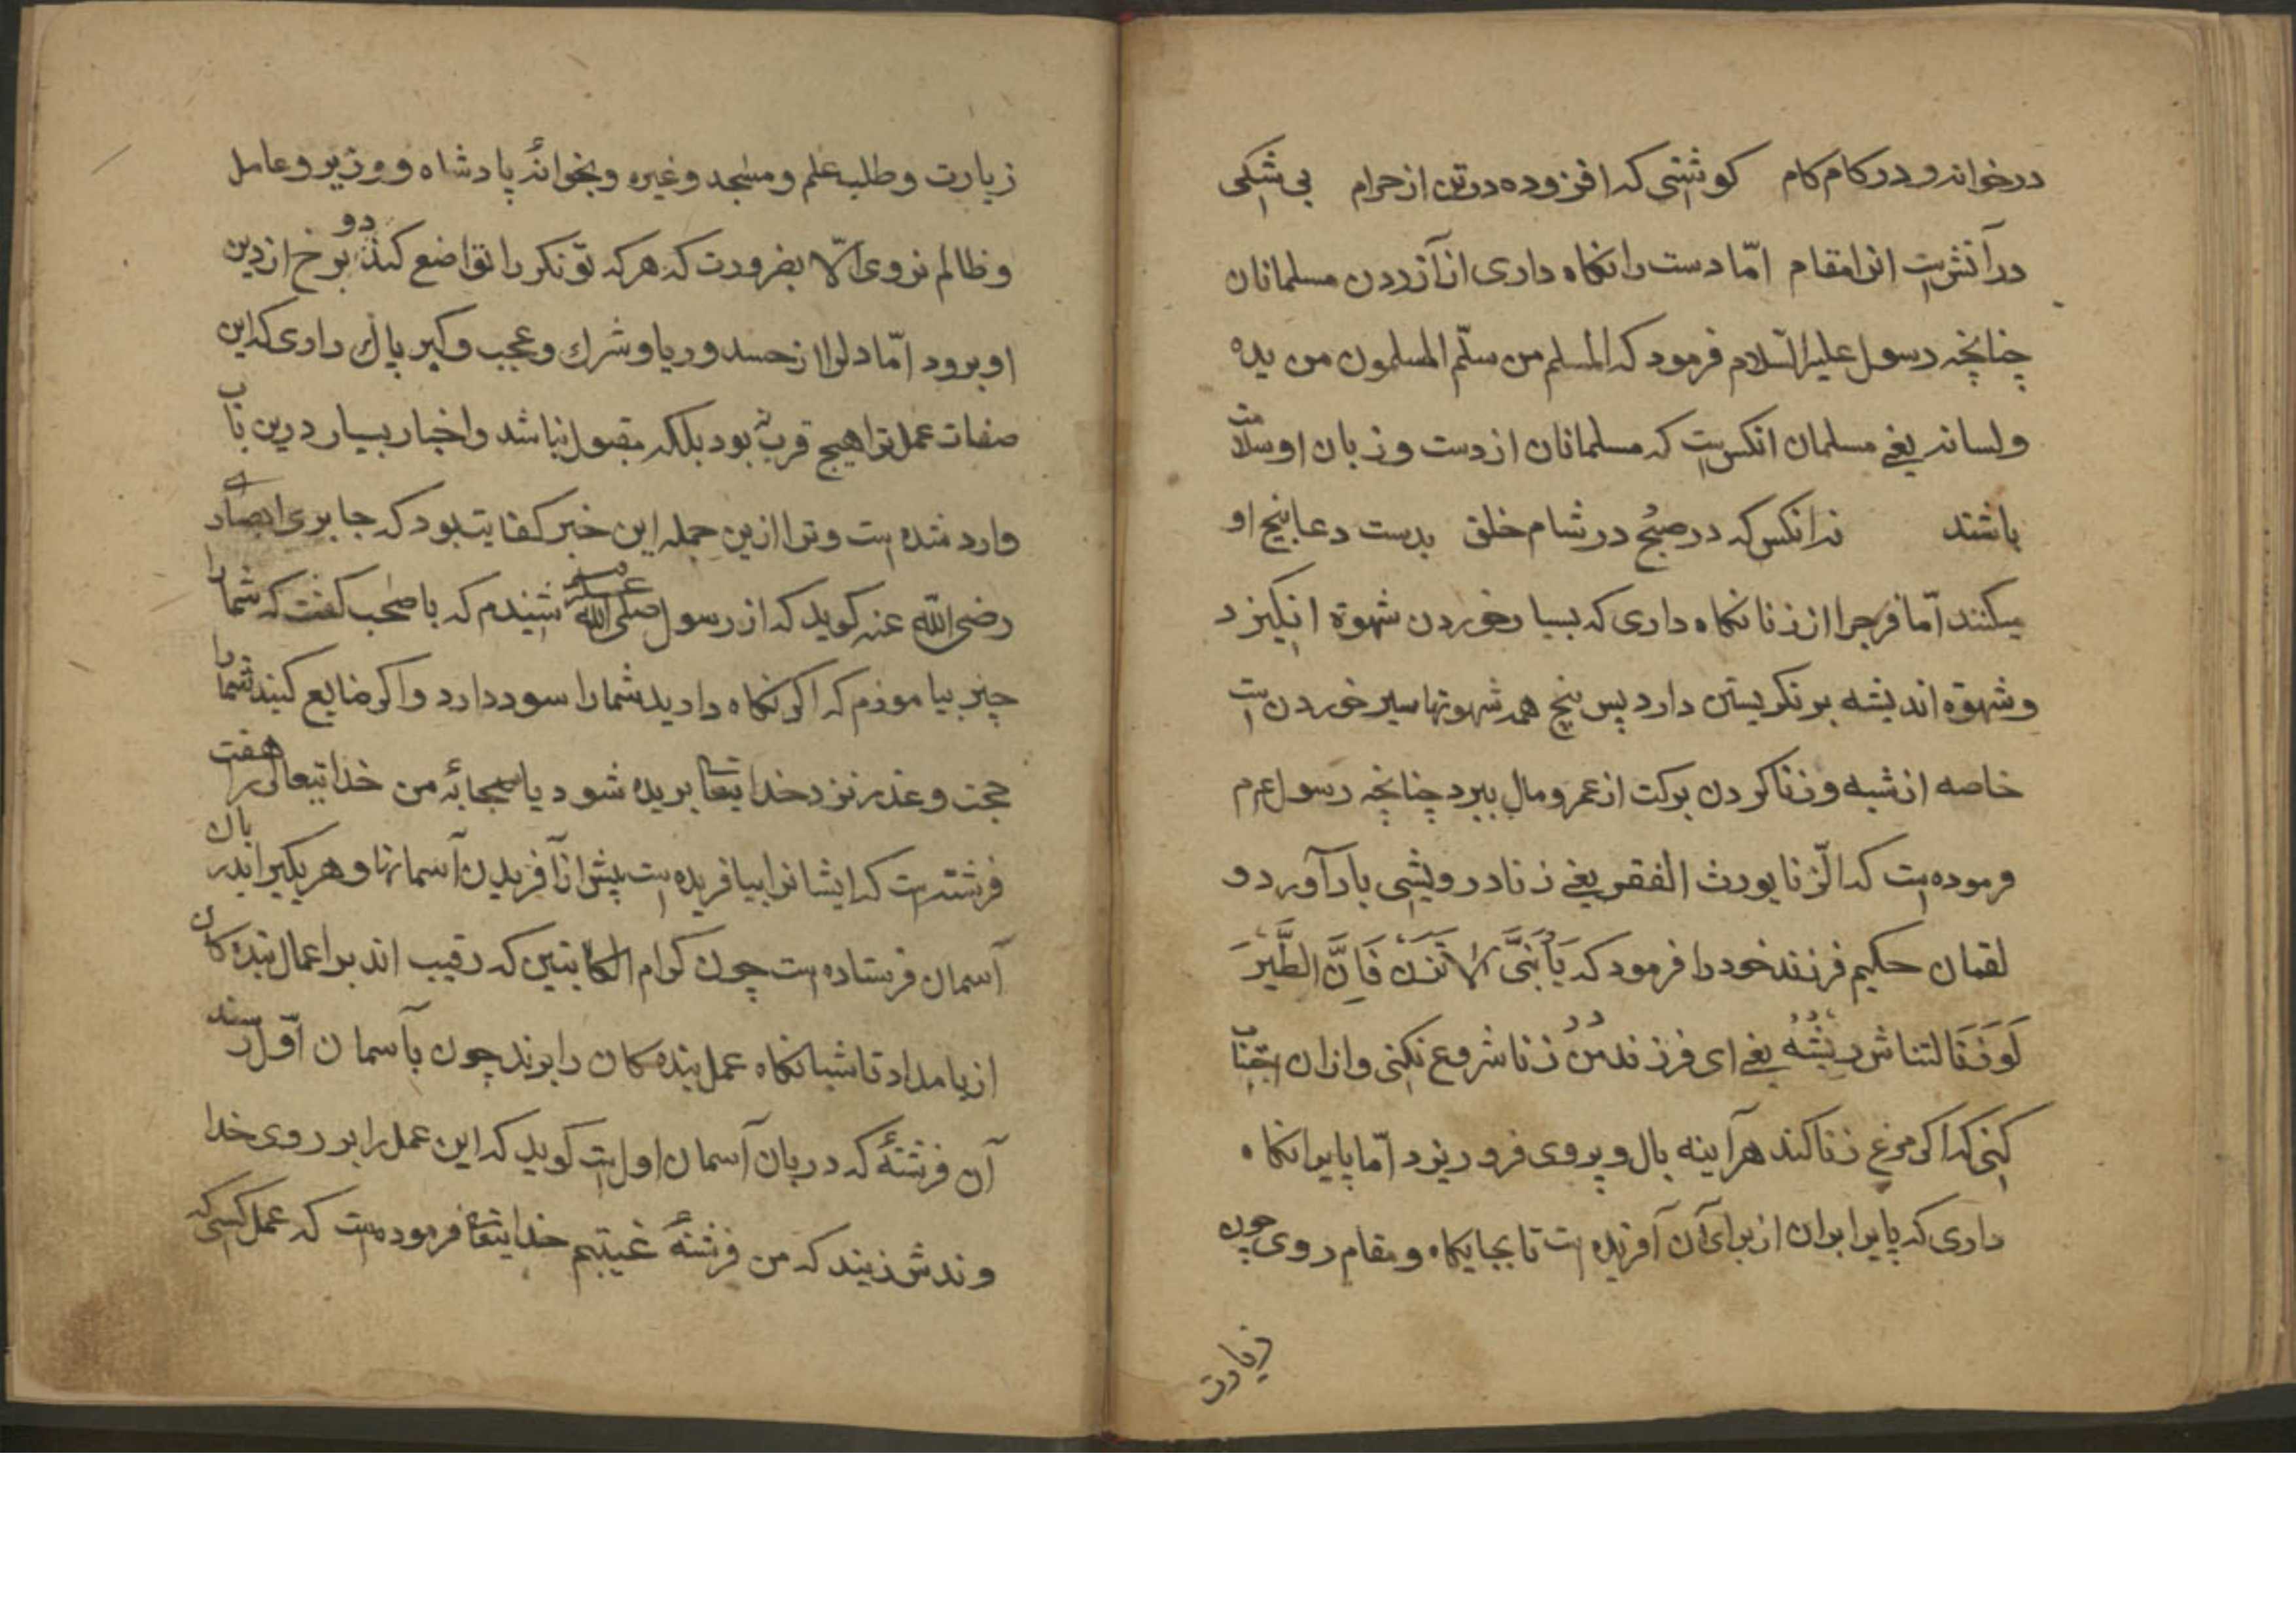 درخوانه و در کام کام کوشتی که افزوده در تن از حرام بی شکی
در آتشست انرا مقام امّا دست را نکاه داری از آزردن مسلمانان
چنانچه رسول علیه السّلام فرمود که المسلم من سلّم المسلمون من یده
ولسانه یعنی مسلمان انکس است که مسلمانان از دست و زبان او سلامت
باشند نه انکس که در صبح در شام خلق بدست دعا بیخ او
میکنند امّا فرج را از زنا نکاه داری که بسیار خوردن شهوة انکیزد
وشهوة اندیشه بر نکریستن دارد پس بیخ همه شهوتها سیر خوردن است
خاصه از شبه و زنا کردن برکت از عمر و مال ببرد چنانچه رسول عم
فرموده است که الزّنا یورث الفقر یعنی زنا درویشی بار آورد و
لقمان حکیم فرزند خود را فرمود که یَا بُنَیَّ لا تَزْنِ فَاِنَّ الطَّیْرَ
لَوْ زَنَا لتناثر ریشُهُ یعنی ای فرزند من زنا شروع نکنی و ازان اجتناب
کنی که اکر مرغ زنا کند هرآینه بال و پر وی فرو ریزد امّا پایرا نکاه
داری که پایرا بران از برای آن آفریده است تا بجایکاه و مقام روی چون
زیارت
زیارت و طلب علم و مسجد و غیره و بخوانهٔ پادشاه و وزیر و عامل
و ظالم نروی الّا بضرورت که هر که تونکر را تواضع کند دو برخ از دین
او برود امّا دلرا از حسد و ریا و شرك و عجب و کبر پاك داری که این
صفات عمل ترا هیچ قربت بود بلکه مقبول نباشد و اخبار بسیار درین باب
وارد شده است و ترا ازین جمله این خبر کفایت بود که جابری انصاری
رضی الله عنه کوید که از رسول صلی الله علیه شنیدم که با صحب کفت که شما را
چیز بیاموزم که اکر نکاه دارید شما را سود دارد و اکر ضایع کنید شما را
حجت و عذر نزد خدایتعا بریده شود یا صحابهٔ من خدایتعالی را هفت
فرشته است که ایشانرا بیافریده است پیش از آفریدن آسمانها و هر یکیرا بدربان
آسمان فرستاده است چون کرام الکاتبین که رقیب اند بر اعمال بنده کان
از بامداد تا شبانکاه عمل بنده کان را برند چون بآسمان اوّل رسند
آن فرشتهٔ که دربان آسمان اولست کوید که این عمل را بر روی خدا
وندش زنید که من فرشتهٔ غیبتم خدایتعا فرموده است که عمل کسی که